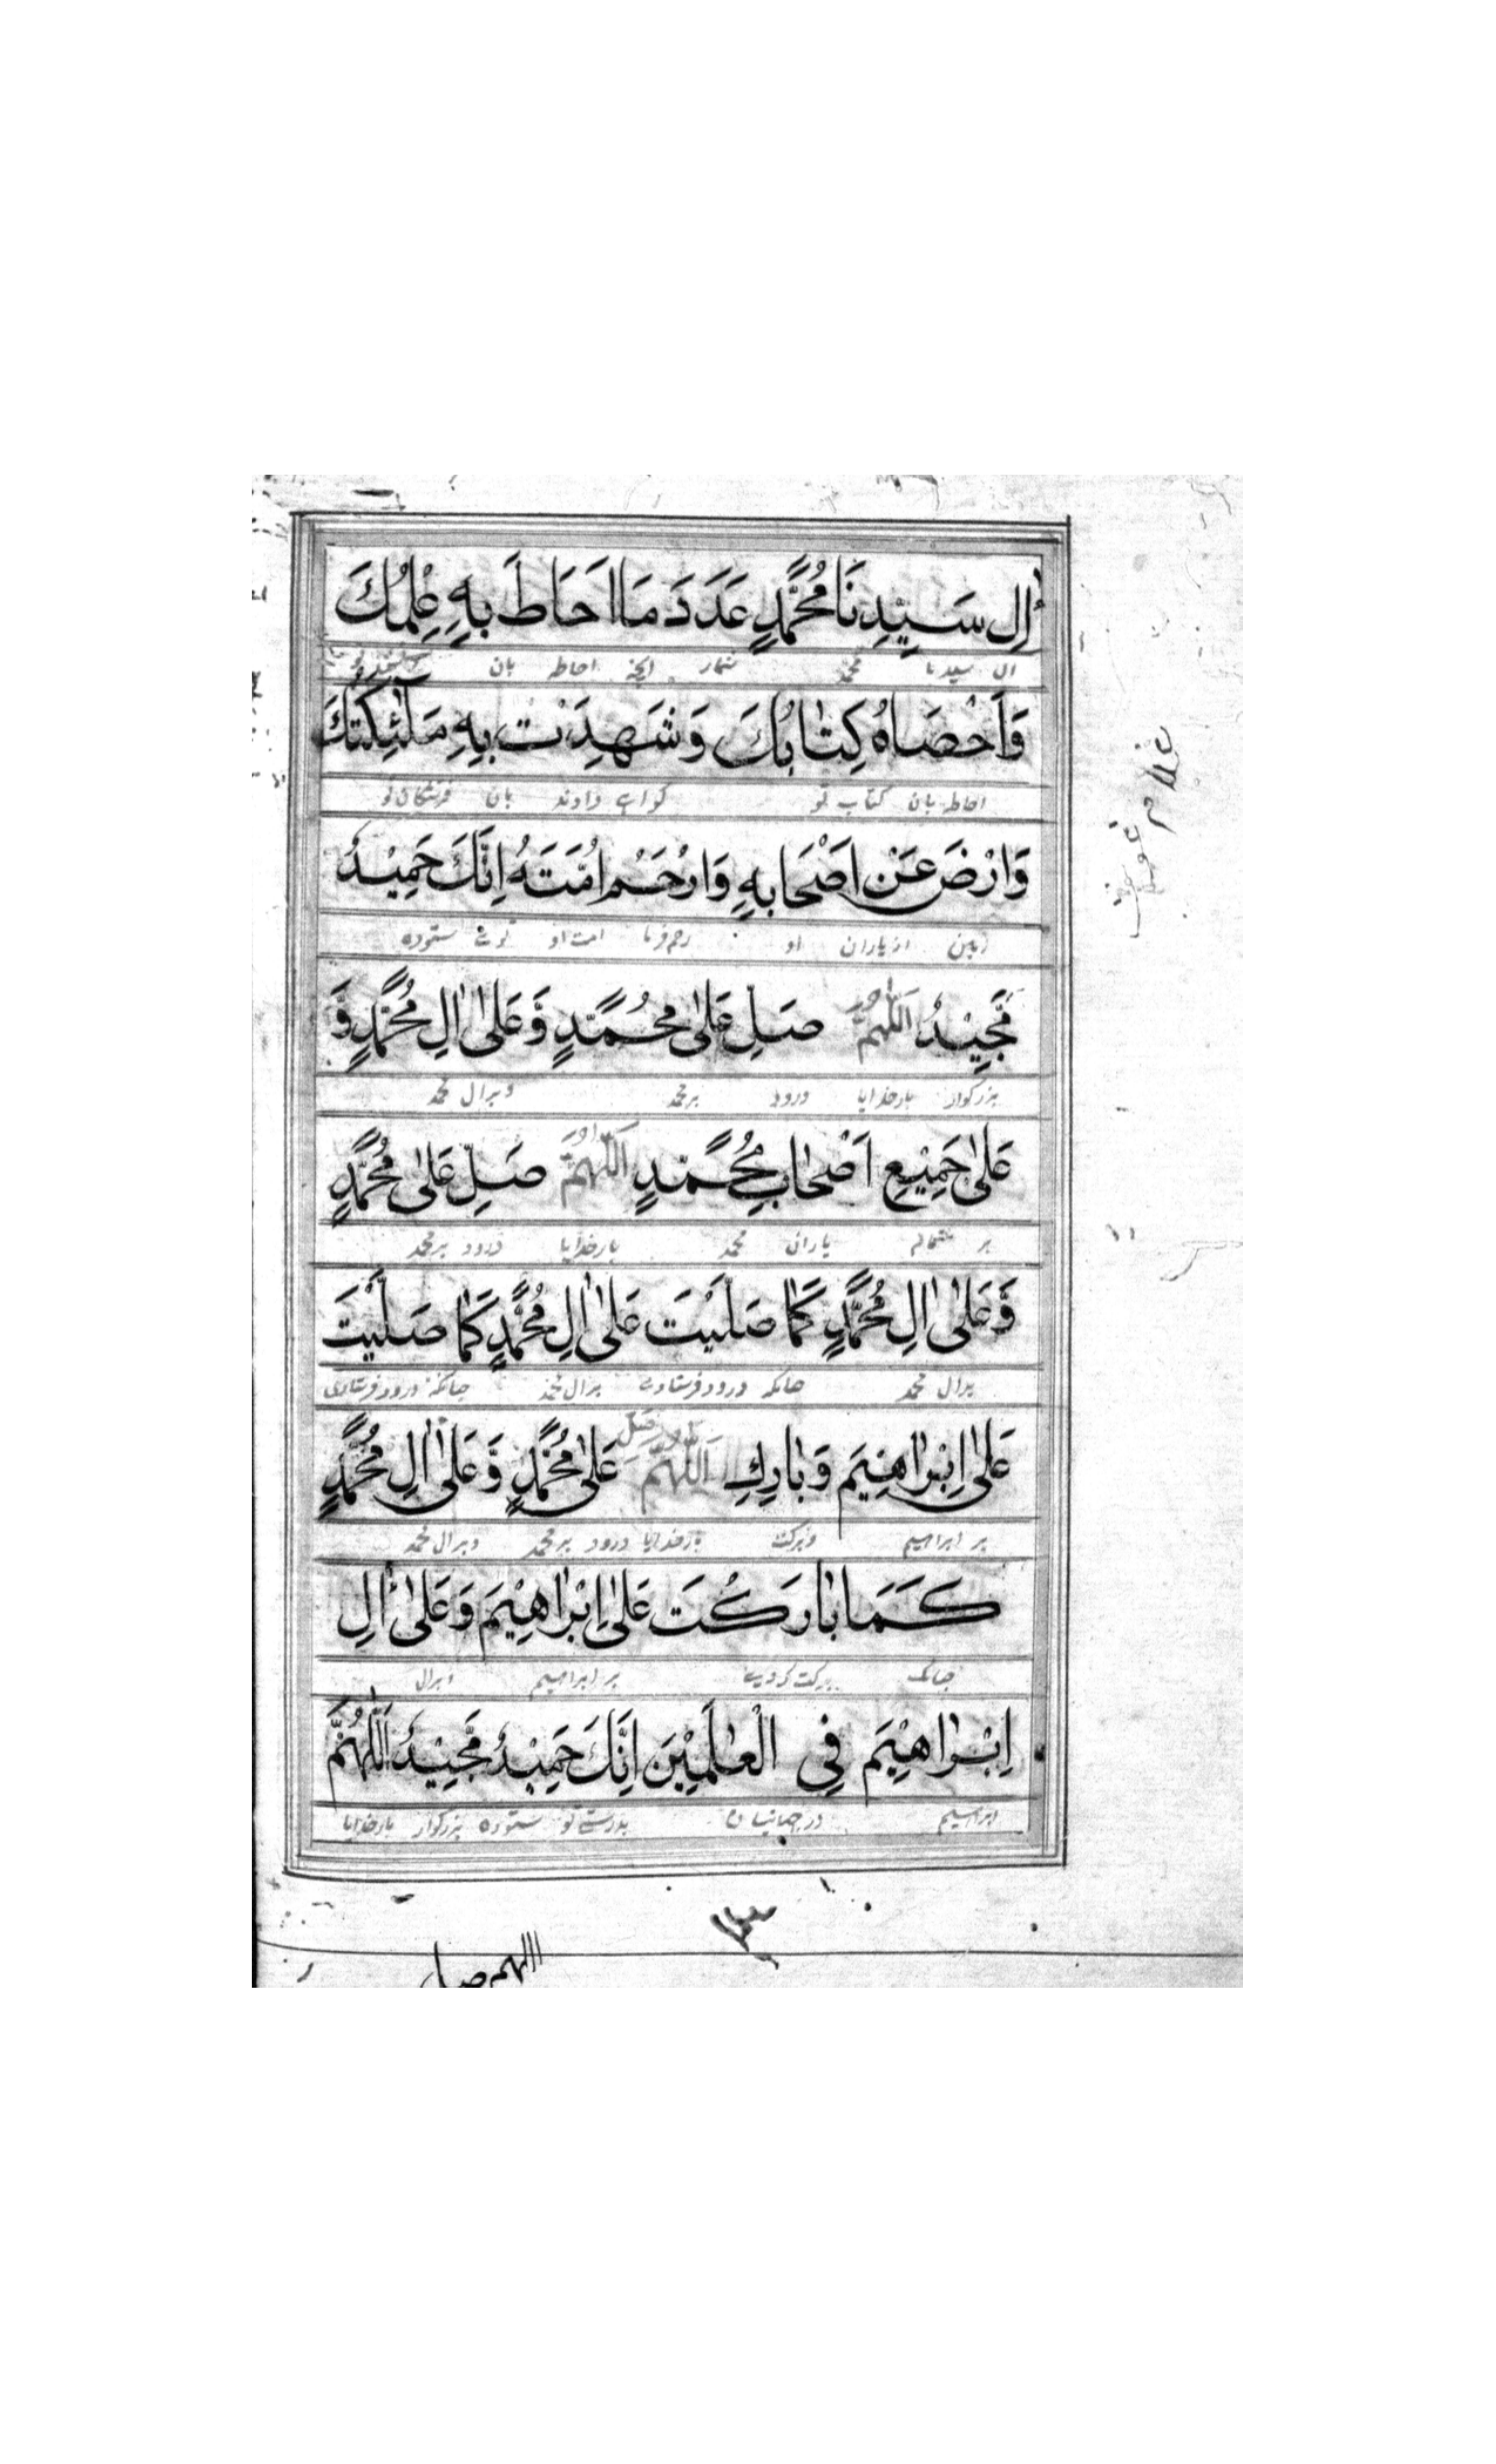 اٰلِ سَيِّدِنَا مُحَمَّدٍ عَدَدَ مَا اَحَاطَ بِهِ عِلْمُكَ
ال سیدنا محمد شمار انچه احاطه بان
وَاَحْصَاهُ كِتَابُكَ وَشَهِدَتْ بِهِ مَلٰٓئِكَتُكَ
احاطه بان کتاب تو کواهی دادند بان فرشتکان تو
وَارْضَ عَنْ اَصْحَابِهِ وَارْحَمْ اُمَّتَهُ اِنَّكَ حَمِيْدٌ
از یاران او رحم فرما امت او توئی ستوده
مَّجِيْدٌ اَللّٰهُمَّ صَلِّ عَلٰى مُحَمَّدٍ وَّعَلٰى اٰلِ مُحَمَّدٍ وَّ
بزرکوار بارخدایا درود بر محمد وبرال محمد
عَلٰى جَمِيْعِ اَصْحَابِ مُحَمَّدٍ اَللّٰهُمَّ صَلِّ عَلٰى مُحَمَّدٍ
بر یاران محمد بارخدایا درود بر محمد
وَّعَلٰى اٰلِ مُحَمَّدٍ كَمَا صَلَّيْتَ عَلٰى اٰلِ مُحَمَّدٍ كَمَا صَلَّيْتَ
برال محمد چنانکه درود فرستادی برال محمد چنانکه درود فرستادی
عَلٰى اِبْرَاهِيْمَ وَبَارِكِ اَللّٰهُمَّ صَلِّ عَلٰى مُحَمَّدٍ وَّعَلٰى اٰلِ مُحَمَّدٍ
بر ابراهیم وبرکت بارخدایا درود بر محمد وبرال محمد
كَمَا بَارَكْتَ عَلٰى اِبْرَاهِيْمَ وَعَلٰى اٰلِ
چنانکه برکت کردی بر ابراهیم وبرال
اِبْرَاهِيْمَ فِي الْعٰلَمِيْنَ اِنَّكَ حَمِيْدٌ مَّجِيْدٌ اَللّٰهُمَّ
ابراهیم در جهانیان بدرستی تو ستوده بزرکوار بارخدایا
اللهم صل